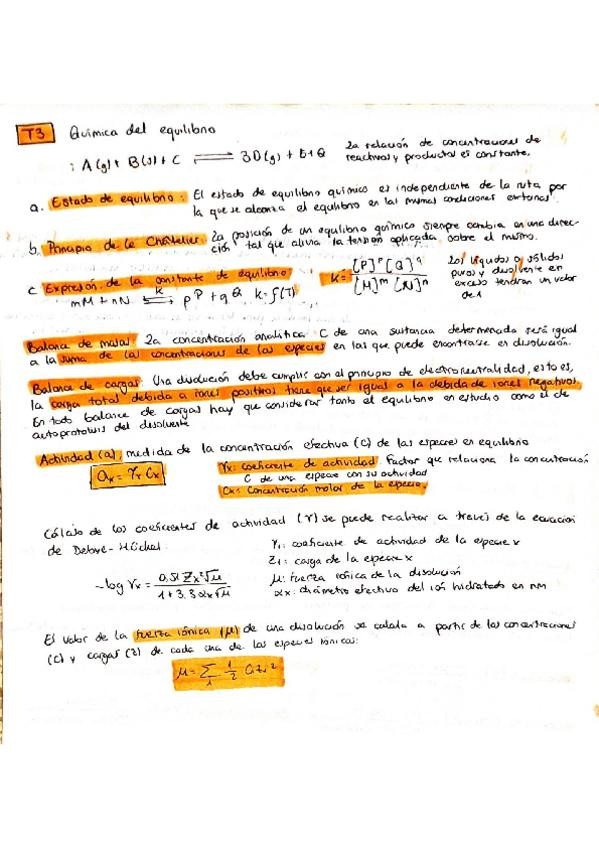 T3 Química del equilibrio
A(g) + B(s) + C ⇌ 3D(g) + 5+Q
La relación de concentraciones de
reactivos y productos es constante.
a. Estado de equilibrio: El estado de equilibrio químico es independiente de la ruta por
la que se alcanza el equilibrio en las mismas condiciones externas.
b. Principio de Le Châtelier: La posición de un equilibrio químico siempre cambia en una direc-
ción tal que alivia la tensión aplicada sobre el mismo.
c Expresión de la constante de equilibrio
mM + nN ⇌ pP + qQ k=f(T)
K = [P]^p [Q]^q / [M]^m [N]^n
Los líquidos o sólidos
puros y disolvente en
exceso tendran un valor
de 1
Balance de masas: La concentración analítica C de una sustancia determinada será igual
a la suma de las concentraciones de las especies en las que puede encontrarse en disolución.
Balance de cargas: Una disolución debe cumplir con el principio de electroneutralidad, esto es,
la carga total debida a iones positivos tiene que ser igual a la debida de iones negativos.
En todo balance de cargas hay que considerar tanto el equilibrio en estudio como el de
autoprotolisis del disolvente
Actividad (a), medida de la concentración efectiva (C) de las especies en equilibrio
ax = γx Cx
γx: coeficiente de actividad. Factor que relaciona la concentración
C de una especie con su actividad
Cx: Concentración molar de la especie.
Cálculo de los coeficientes de actividad (γ) se puede realizar a través de la ecuación
de Debye-Hückel
-log γx = 0,51 Zx² √μ / 1+3,3 αx √μ
γ1: coeficiente de actividad de la especie x
Z1: carga de la especie x
μ: fuerza iónica de la disolución
αx: diámetro efectivo del ión hidratado en nm
El valor de la fuerza iónica (μ) de una disolución se calcula a partir de las concentraciones
(C) y cargas (z) de cada una de las especies iónicas:
μ = Σi 1/2 Ci zi²